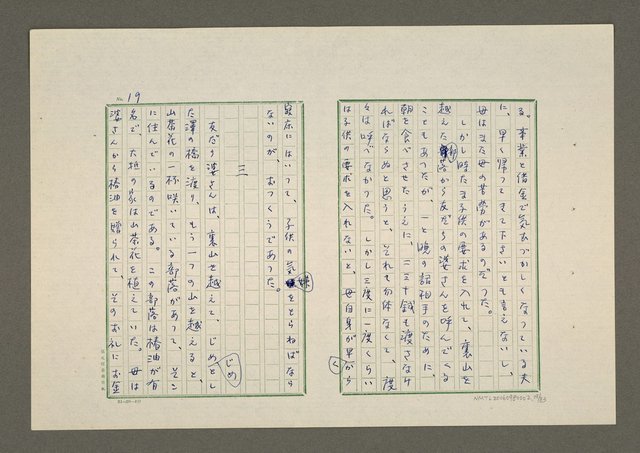 る。事業と借金で気むづかしくなっている夫
に、早く帰ってきて下さいとも言えないし、
母はまた母の苦労があるのだった。
しかし時たま子供の要求を入れて、裏山を
越えた部落から友だちの婆さんを呼んでくる
こともあったが、一と晩の話相手のために、
朝を食べさせたうえに、二三十銭も渡さなけ
ればならぬと思うと、それも勿体なくて、度
々は呼べなかった。しかし三度に一度くらい
は子供の要求を入れないと、母自身が早がら
く
No. 19
寝床にはいって、子供の気嫌をとらねばなら
ないのが、おっくうであった。
三
友だち婆さんは、裏山を越えて、じめとし
じめ
た澤の橋を渡り、もう一つの山を越えると、
山茶花の一杯咲いている部落があって、そこ
に住んでいるのである。この部落は椿油が有
名で、大抵の家は山茶花を植えていた。母は
婆さんから椿油を贈られて、そのお礼にお金